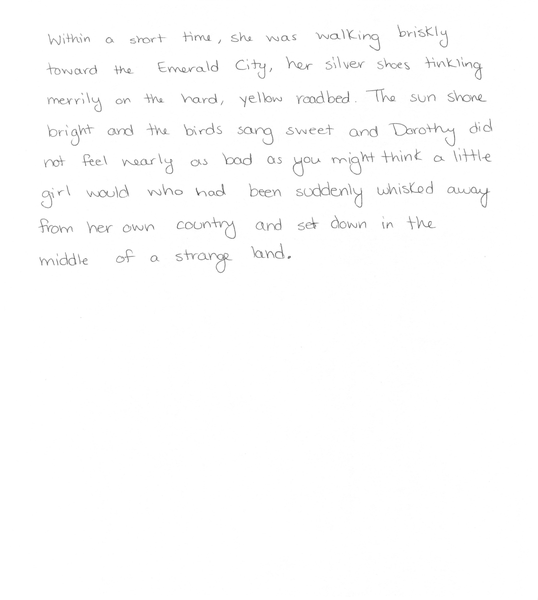 Within a short time, she was walking briskly
toward the Emerald City, her silver shoes tinkling
merrily on the hard, yellow roadbed. The sun shone
bright and the birds sang sweet and Dorothy did
not feel nearly as bad as you might think a little
girl would who had been suddenly whisked away
from her own country and set down in the
middle of a strange land.